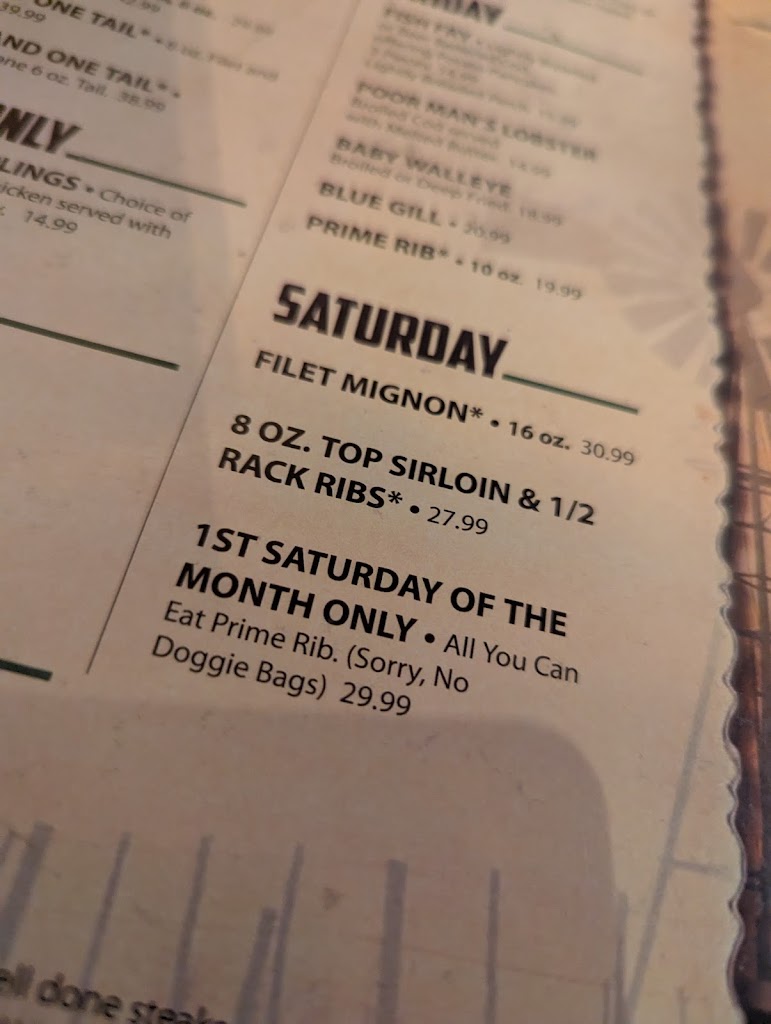 39.99
ONE TAIL* •
AND ONE TAIL* •
one 6 oz. Tail. 38.99
NLY
LINGS • Choice of
icken served with
14.99
FISH FRY •
POOR MAN'S LOBSTER
Broiled Cod served
with Melted Butter. 14.99
BABY WALLEYE
Broiled or Deep Fried. 18.99
BLUE GILL • 20.99
PRIME RIB* • 10 oz. 19.99
SATURDAY
FILET MIGNON* • 16 oz. 30.99
8 OZ. TOP SIRLOIN & 1/2
RACK RIBS* • 27.99
1ST SATURDAY OF THE
MONTH ONLY • All You Can
Eat Prime Rib. (Sorry, No
Doggie Bags) 29.99
ell done steaks